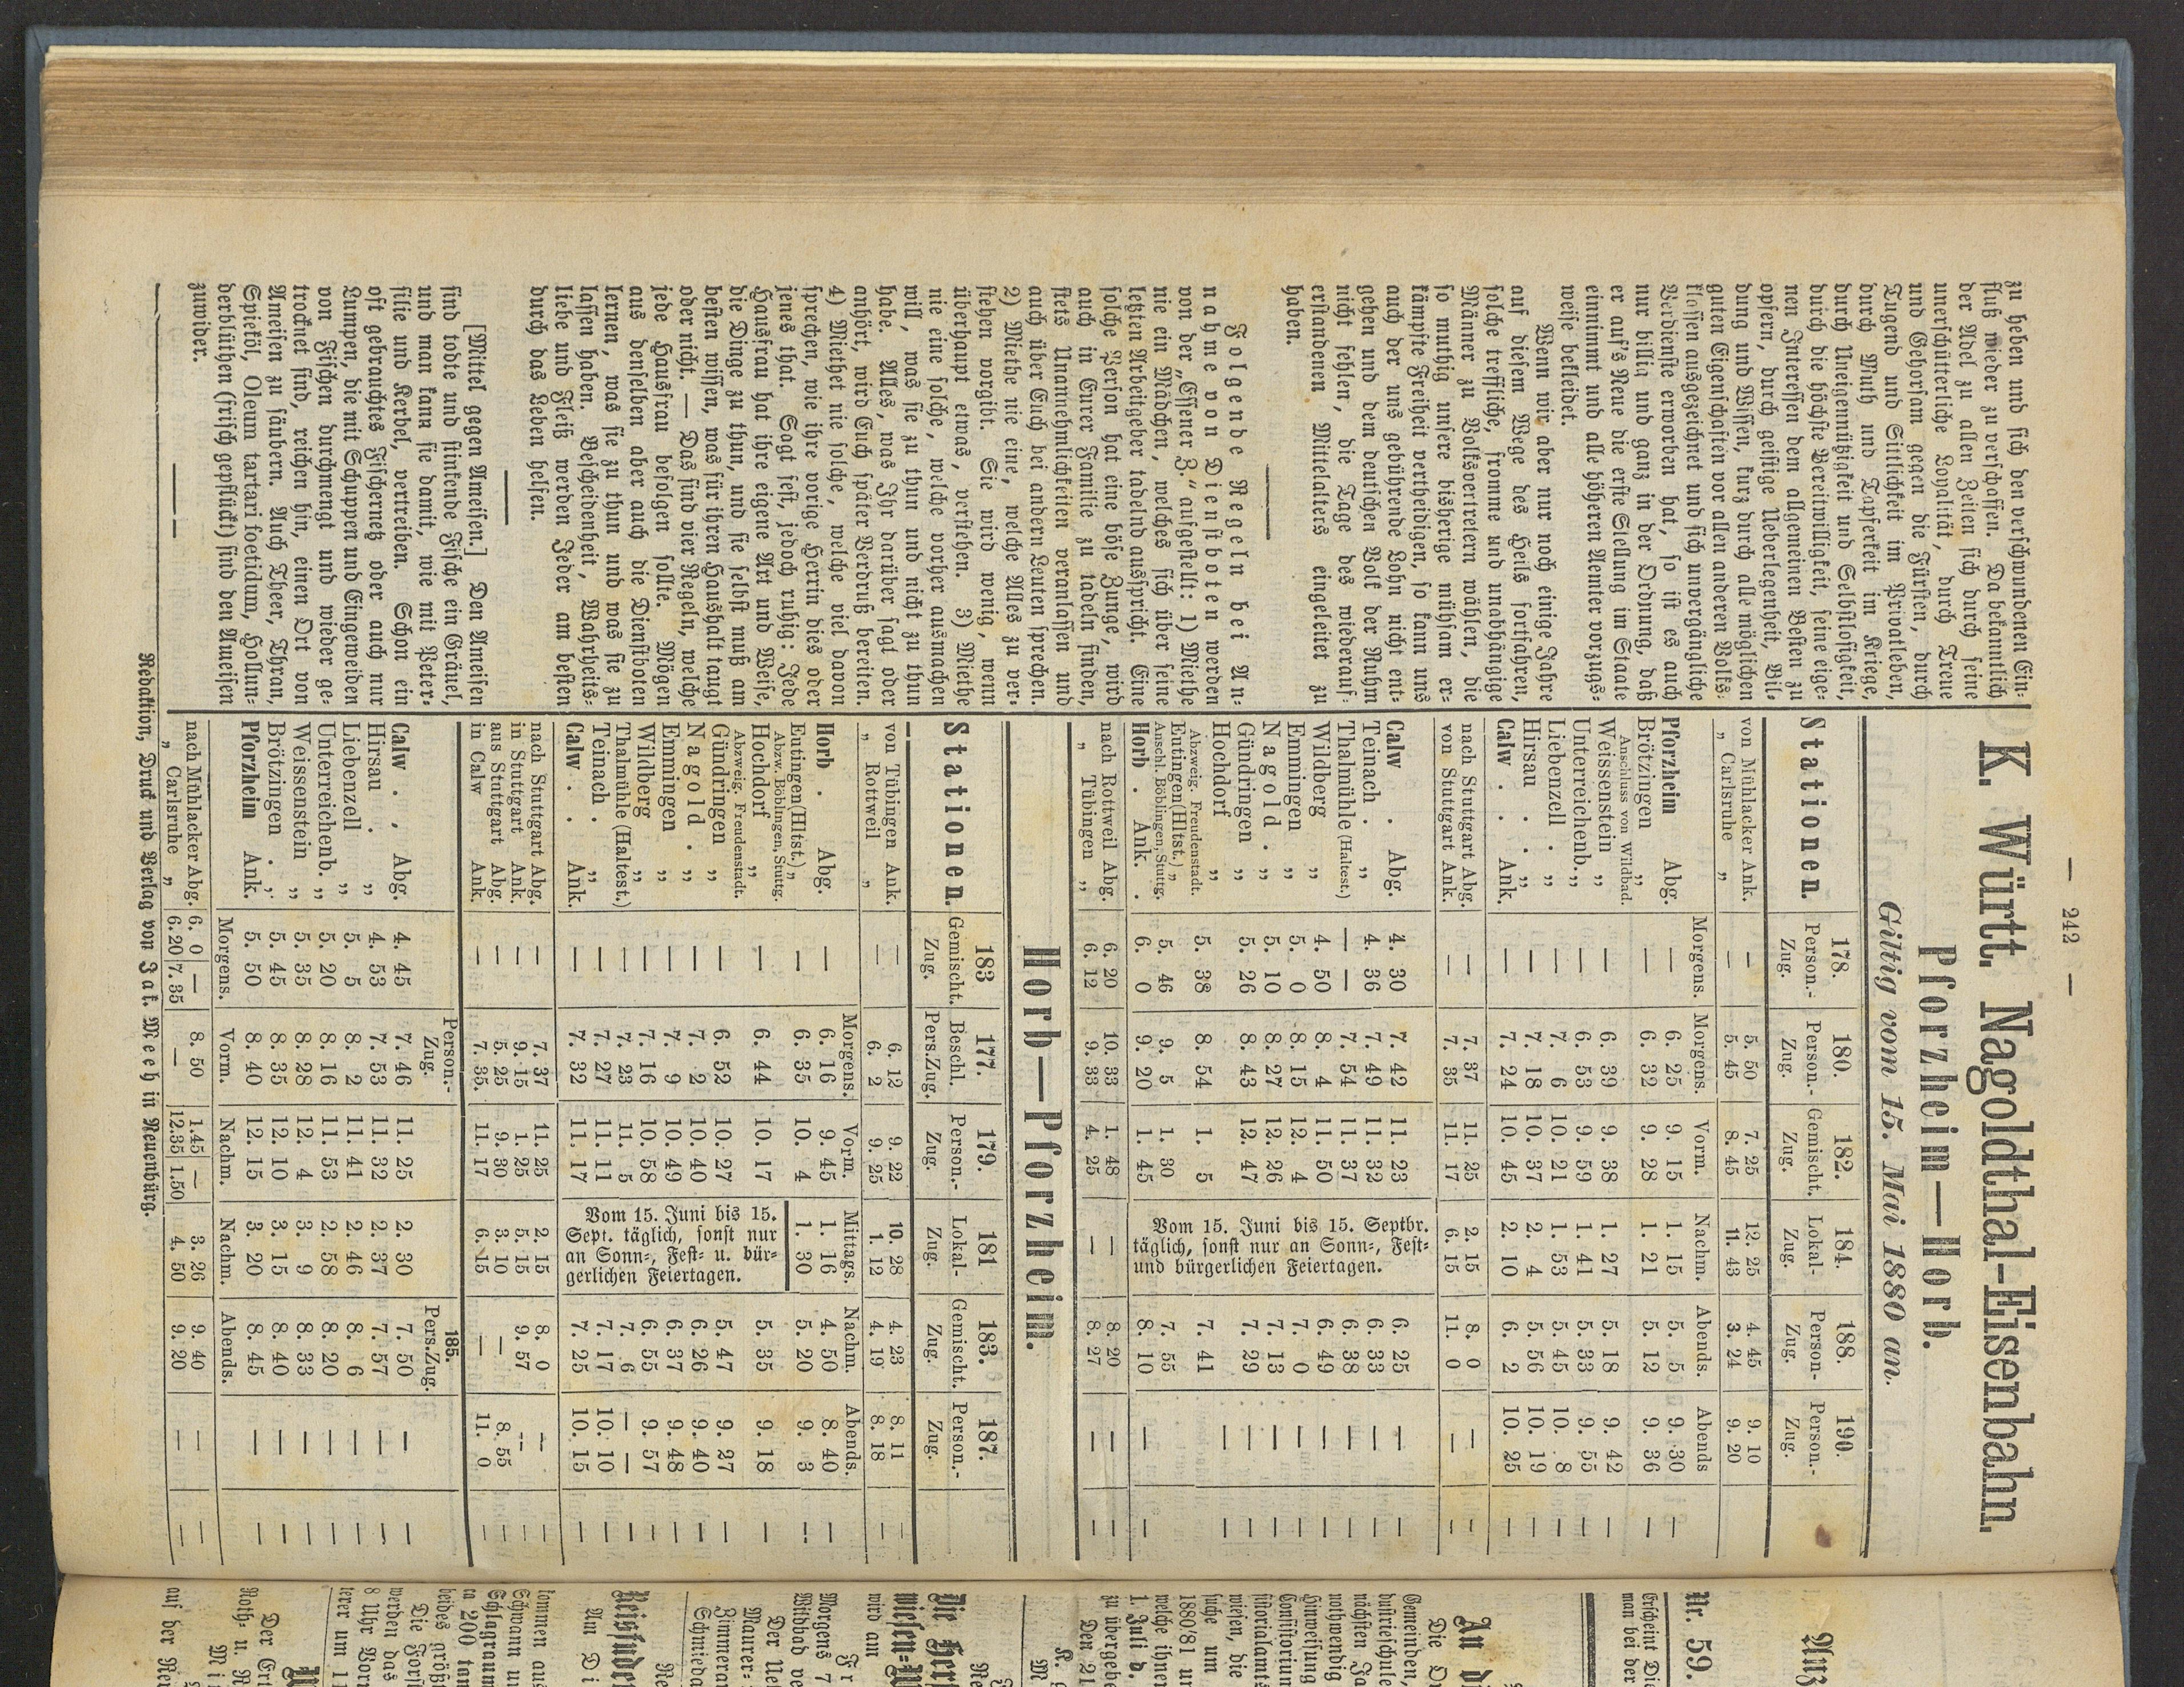 — 242 —
zu heben und sich den verschwundenen Ein-
fluß wieder zu verschaffen. Da bekanntlich
der Adel zu allen Zeiten sich durch seine
unerschütterliche Loyalität, durch Treue
und Gehorsam gegen die Fürsten, durch
Tugend und Sittlichkeit im Privatleben,
durch Muth und Tapferkeit im Kriege,
durch Uneigennützigkeit und Selbstlosigkeit,
durch die höchste Bereitwilligkeit, seine eige-
nen Interessen dem allgemeinen Besten zu
opfern, durch geistige Ueberlegenheit, Bil-
dung und Wissen, kurz durch alle möglichen
guten Eigenschaften vor allen anderen Volks-
klassen ausgezeichnet und sich unvergängliche
Verdienste erworben hat, so ist es auch
nur billig und ganz in der Ordnung, daß
er auf's Neue die erste Stellung im Staate
einnimmt und alle höheren Aemter vorzugs-
weise bekleidet.
Wenn wir aber nur noch einige Jahre
auf diesem Wege des Heils fortfahren,
solche treffliche, fromme und unabhängige
Männer zu Volksvertretern wählen, die
so muthig unsere bisherige mühsam er-
kämpfte Freiheit vertheidigen, so kann uns
auch der uns gebührende Lohn nicht ent-
gehen und dem deutschen Volk der Ruhm
nicht fehlen, die Tage des wiederauf-
erstandenen Mittelalters eingeleitet zu
haben.
Folgende Regeln bei An-
nahme von Dienstboten werden
von der „Essener Z.“ aufgestellt: 1) Miethe
nie ein Mädchen, welches sich über seine
letzten Arbeitgeber tadelnd ausspricht. Eine
solche Person hat eine böse Zunge, wird
auch in Eurer Familie zu tadeln finden,
stets Unannehmlichkeiten veranlassen und
auch über Euch bei andern Leuten sprechen.
2) Miethe nie eine, welche Alles zu ver-
stehen vorgibt. Sie wird wenig, wenn
überhaupt etwas, verstehen. 3) Miethe
nie eine solche, welche vorher ausmachen
will, was sie zu thun und nicht zu thun
habe. Alles, was Ihr darüber sagt oder
anhört, wird Euch später Verdruß bereiten.
4) Miethet nie solche, welche viel davon
sprechen, wie ihre vorige Herrin dies oder
jenes that. Sagt fest, jedoch ruhig: Jede
Hausfrau hat ihre eigene Art und Weise,
die Dinge zu thun, und sie selbst muß am
besten wissen, was für ihren Haushalt taugt
oder nicht. — Das sind vier Regeln, welche
jede Hausfrau befolgen sollte. Mögen
aus denselben aber auch die Dienstboten
lernen, was sie zu thun und was sie zu
lassen haben. Bescheidenheit, Wahrheits-
liebe und Fleiß werden Jeder am besten
durch das Leben helfen.
[Mittel gegen Ameisen.] Den Ameisen
sind todte und stinkende Fische ein Gräuel,
und man kann sie damit, wie mit Peter-
silie und Kerbel, vertreiben. Schon ein
oft gebrauchtes Fischernetz oder auch nur
Lumpen, die mit Schuppen und Eingeweiden
von Fischen durchmengt und wieder ge-
trocknet sind, reichen hin, einen Ort von
Ameisen zu säubern. Auch Theer, Thran,
Spieköl, Oleum tartari foetidum, Hollun-
derblüthen (frisch gepflückt) sind den Ameisen
zuwider.
K. Württ. Nagoldthal-Eisenbahn.
Pforzheim—Horb.
Giltig vom 15. Mai 1880 an.
Stationen. 178. Person.-Zug. 180. Person.-Zug. 182. Gemischt. Zug. 184. Lokal-Zug. 188. Person-Zug. 190. Person.-Zug.
von Mühlacker Ank. — 5. 50 7. 25 12. 25 4. 45 9. 10
„ Carlsruhe „ — 5. 45 8. 45 11. 43 3. 24 9. 20
Morgens. Morgens. Vorm. Nachm. Abends. Abends
Pforzheim Abg. — 6. 25 9. 15 1. 15 5. 5 9. 30 —
Brötzingen „ — 6. 32 9. 28 1. 21 5. 12 9. 36 —
Anschluss von Wildbad.
Weissenstein „ — 6. 39 9. 38 1. 27 5. 18 9. 42 —
Unterreichenb. „ — 6. 53 9. 59 1. 41 5. 33 9. 55 —
Liebenzell . „ — 7. 6 10. 21 1. 53 5. 45 10. 8 —
Hirsau . . „ — 7. 18 10. 37 2. 4 5. 56 10. 19 —
Calw . . Ank. — 7. 24 10. 45 2. 10 6. 2 10. 25 —
nach Stuttgart Abg. — 7. 37 11. 25 2. 15 8. 0 — —
von Stuttgart Ank. — 7. 35 11. 17 6. 15 11. 0 — —
Calw . Abg. 4. 30 7. 42 11. 23 6. 25 — —
Teinach . „ 4. 36 7. 49 11. 32 6. 33 — —
Thalmühle (Haltest.) — — 7. 54 11. 37 6. 38 — —
Wildberg „ 4. 50 8. 4 11. 50 6. 49 — —
Emmingen „ 5. 0 8. 15 12. 4 7. 0 — —
Nagold . „ 5. 10 8. 27 12. 26 7. 13 — —
Gündringen „ 5. 26 8. 43 12. 47 7. 29 — —
Hochdorf „ 5. 38 8. 54 1. 5 7. 41 — —
Abzweig. Freudenstadt.
Eutingen (Hltst.) „ 5. 46 9. 5 1. 30 7. 55
Anschl. Böblingen, Stuttg.
Horb . Ank. . 6. 0 9. 20 1. 45 8. 10 — —
Vom 15. Juni bis 15. Septbr.
täglich, sonst nur an Sonn-, Fest-
und bürgerlichen Feiertagen.
nach Rottweil Abg. 6. 20 10. 33 1. 48 — 8. 20 — —
„ Tübingen „ 6. 12 9. 33 4. 25 — 8. 27 — —
Horb—Pforzheim.
Stationen. 183 Gemischt. Zug. 177. Beschl. Pers.Zug. 179. Person.-Zug. 181 Lokal-Zug. 183. Gemischt. Zug. 187. Person.-Zug.
von Tübingen Ank. — 6. 12 9. 22 10. 28 4. 23 8. 11 —
„ Rottweil „ — 6. 2 9. 25 1. 12 4. 19 8. 18 —
Morgens. Vorm. Mittags. Nachm. Abends.
Horb . Abg. — 6. 16 9. 45 1. 16 4. 50 8. 40 —
Eutingen (Hltst.) „ — 6. 35 10. 4 1. 30 5. 20 9. 3 —
Abzw. Böblingen, Stuttg.
Hochdorf „ — 6. 44 10. 17 5. 35 9. 18 —
Abzweig. Freudenstadt.
Gündringen „ — 6. 52 10. 27 5. 47 9. 27 —
Nagold . „ — 7. 2 10. 40 6. 26 9. 40 —
Emmingen „ — 7. 9 10. 49 6. 37 9. 48 —
Wildberg „ — 7. 16 10. 58 6. 55 9. 57 —
Thalmühle (Haltest.) — 7. 23 11. 5 7. 6 — —
Teinach . „ — 7. 27 11. 11 7. 17 10. 10 —
Calw . . Ank. — 7. 32 11. 17 7. 25 10. 15 —
Vom 15. Juni bis 15.
Sept. täglich, sonst nur
an Sonn-, Fest- u. bür-
gerlichen Feiertagen.
nach Stuttgart Abg. — 7. 37 11. 25 2. 15 8. 0 — —
in Stuttgart Ank. — 9. 15 1. 25 5. 15 9. 57 — —
aus Stuttgart Abg. — 5. 25 9. 30 3. 10 — 8. 55 —
in Calw Ank. — 7. 35. 11. 17 6. 15 — 11. 0 —
Person.-Zug. 185. Pers.Zug.
Calw . . Abg. 4. 45 7. 46 11. 25 2. 30 7. 50 — —
Hirsau . „ 4. 53 7. 53 11. 32 2. 37 7. 57 — —
Liebenzell „ 5. 5 8. 2 11. 41 2. 46 8. 6 — —
Unterreichenb. „ 5. 20 8. 16 11. 53 2. 58 8. 20 — —
Weissenstein „ 5. 35 8. 28 12. 4 3. 9 8. 33 — —
Brötzingen . „ 5. 45 8. 35 12. 10 3. 15 8. 40 — —
Pforzheim Ank. 5. 50 8. 40 12. 15 3. 20 8. 45 — —
Morgens. Vorm. Nachm. Nachm. Abends.
nach Mühlacker Abg. 6. 0 — 8. 50 1.45 — 3. 26 9. 40 — —
„ Carlsruhe „ 6. 20 7. 35 — 12.35 1.50 4. 50 9. 20 — —
Redaktion, Druck und Verlag von Jak. Meeh in Neuenbürg.
Nr. 59.
Erscheint Die
man bei der
An d
Die
Gemeinden,
dustrieschule
nächsten Ja
nothwendig
Hinweisung
Consistorium
wiesen, die
suche um
1880/81
welche ihnen
1. Juli d.
zu übergeb
Den 21
K.
M
wird an
Morgens 7
Wildbad
Maurer-
Zimmera
Schmieda
Am Di
kommen aus
Schwann
ca 200
beides größt
werden das
8 Uhr Vor
terer um 1
Der
auf der